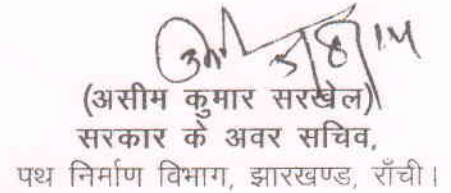 5/8/14
(असीम कुमार सरखेल)
सरकार के अवर सचिव,
पथ निर्माण विभाग, झारखण्ड, राँची।